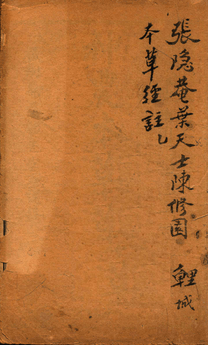 張隐菴葉天士陳修园
本草經註乙
城